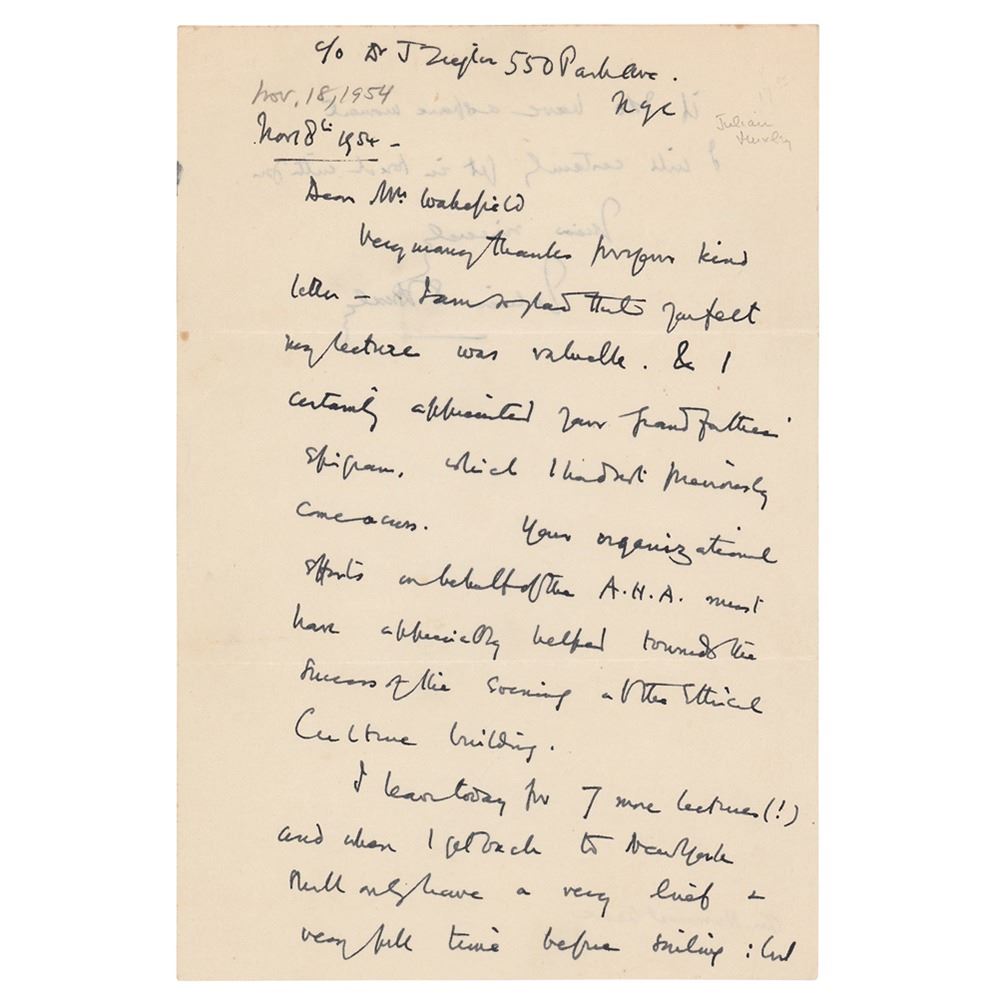 c/o Dr J Ziegler 550 Park Ave.
NYC
Nov. 18, 1954
Julian Huxley
Nov 18th 1954 -
Dear Mrs Wakefield
Very many thanks for your kind
letter - I am so glad that you felt
my lecture was valuable. & I
certainly appreciated your grandfather's
epigram, which I had not previously
come across. Your organizational
efforts on behalf of the A.H.A. must
have appreciably helped towards the
success of the evening at the Ethical
Culture building.
I leave today for 7 more lectures (!)
and when I get back to New York
shall only have a very brief &
very full time before sailing : but